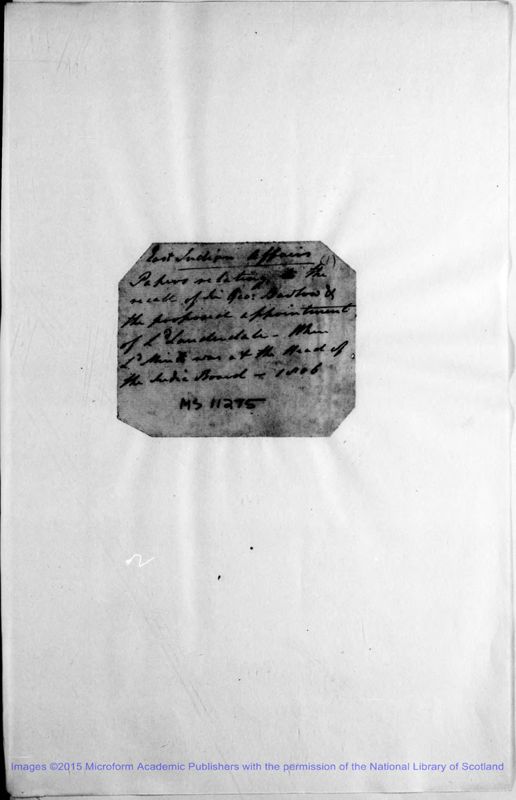 East Indian Affairs (1)
Papers relating to the
recall of Sir Geo: Barlow &
the proposed appointment
of Ld Lauderdale - When
Ld Minto was at the Head of
the India Board - 1806
MS 11275
Images ©2015 Microform Academic Publishers with the permission of the National Library of Scotland